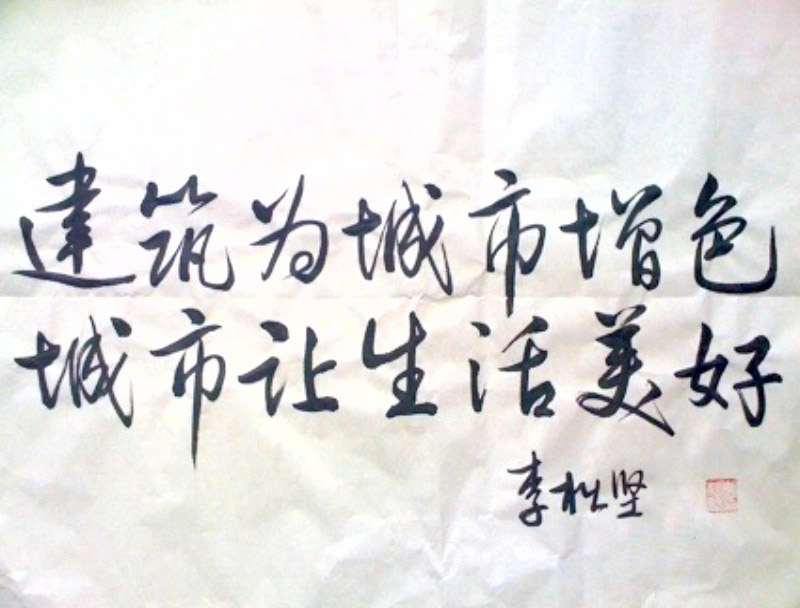 建筑为城市增色
城市让生活美好
李松坚